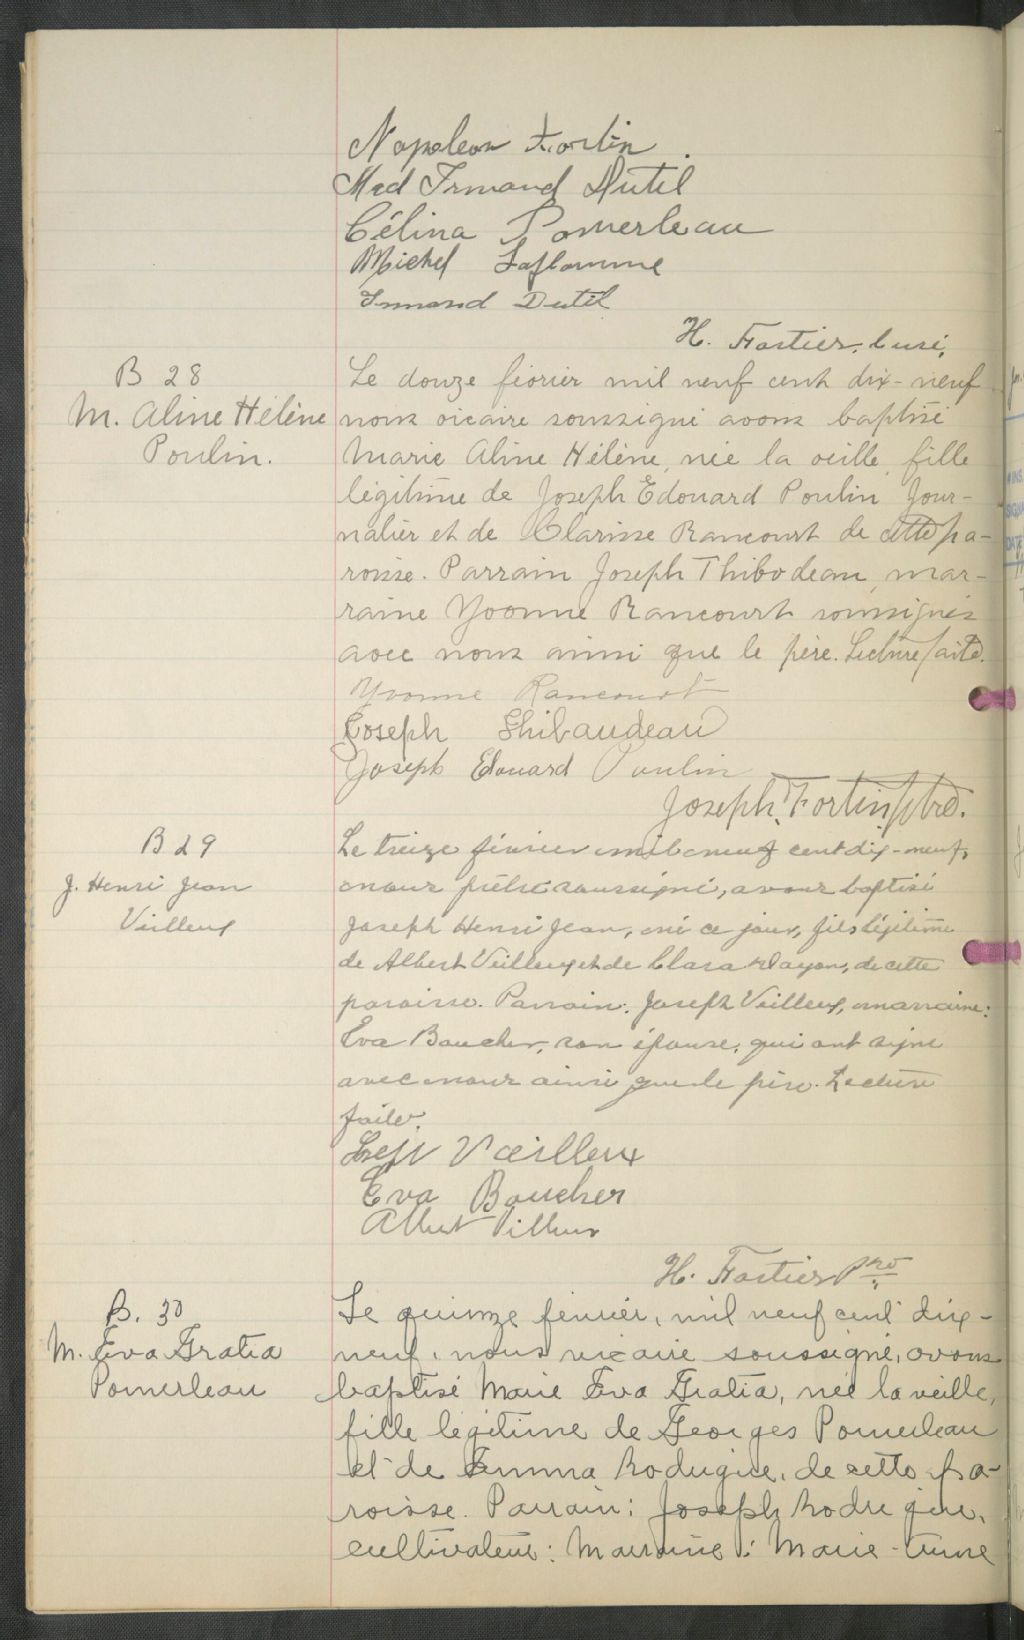 Napoleon Fortin
Mad Irmand Dutil
Célina Pomerleau
Michel Laflamme
Irmand Dutil
H. Fortier, Curé,
B 28
M. Aline Hélène
Poulin.
Le douze février mil neuf cent dix-neuf
nous vicaire soussigné avons baptisé
Marie Aline Hélène, née la veille, fille
légitime de Joseph Edouard Poulin, jour-
nalier et de Clarisse Rancourt de cette pa-
roisse. Parrain Joseph Thibodeau, mar-
raine Yvonne Rancourt soussignés
avec nous ainsi que le père. Lecture faite.
Yvonne Rancourt
Joseph Thibaudeau
Joseph Edouard Poulin
Joseph Fortin ptre.
B 29
J. Henri Jean
Veilleux
Le treize février mil neuf cent dix-neuf,
nous prêtre soussigné, avons baptisé
Joseph Henri Jean, né ce jour, fils légitime
de Albert Veilleux et de Clara, de cette
paroisse. Parrain: Joseph Veilleux, marraine:
Eva Boucher, son épouse, qui ont signé
avec nous ainsi que le père. Lecture
faite.
Veilleux
Eva Boucher
Albert
H. Fortier Ptre
B. 30
M. Eva Gratia
Pomerleau
Le quinze février, mil neuf cent dix-
neuf, nous vicaire soussigné, avons
baptisé Marie Eva Gratia, née la veille,
fille légitime de Georges Pomerleau
et de Emma Rodrigue, de cette pa-
roisse. Parrain: Joseph Rodrigue,
cultivateur: Marraine: Marie-Anne